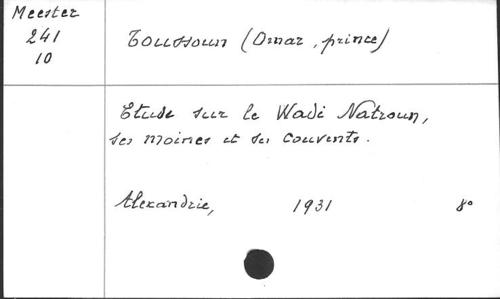 Meester
241
10
Toussoun (Omar, prince)
Etude sur le Wadi Natroun,
ses moines et ses couvents.
Alexandrie, 1931 8°